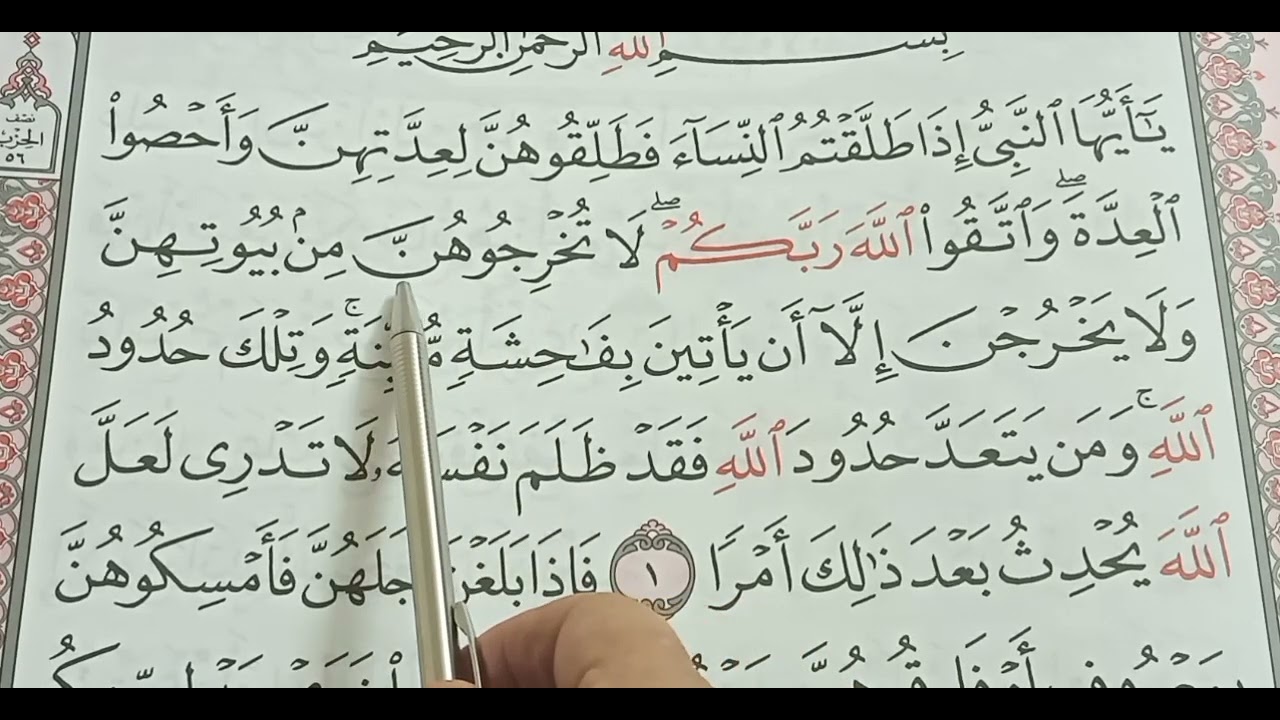 بِسْمِ اللَّهِ الرَّحْمَٰنِ الرَّحِيمِ
نصف
الحزب
٥٦
يَـٰٓأَيُّهَا ٱلنَّبِىُّ إِذَا طَلَّقْتُمُ ٱلنِّسَآءَ فَطَلِّقُوهُنَّ لِعِدَّتِهِنَّ وَأَحْصُوا۟
ٱلْعِدَّةَ ۖ وَٱتَّقُوا۟ ٱللَّهَ رَبَّكُمْ ۖ لَا تُخْرِجُوهُنَّ مِنۢ بُيُوتِهِنَّ
وَلَا يَخْرُجْنَ إِلَّآ أَن يَأْتِينَ بِفَـٰحِشَةٍ مُّبَيِّنَةٍ ۚ وَتِلْكَ حُدُودُ
ٱللَّهِ ۚ وَمَن يَتَعَدَّ حُدُودَ ٱللَّهِ فَقَدْ ظَلَمَ نَفْسَهُۥ لَا تَدْرِى لَعَلَّ
ٱللَّهَ يُحْدِثُ بَعْدَ ذَٰلِكَ أَمْرًا ١ فَإِذَا بَلَغْنَ أَجَلَهُنَّ فَأَمْسِكُوهُنَّ